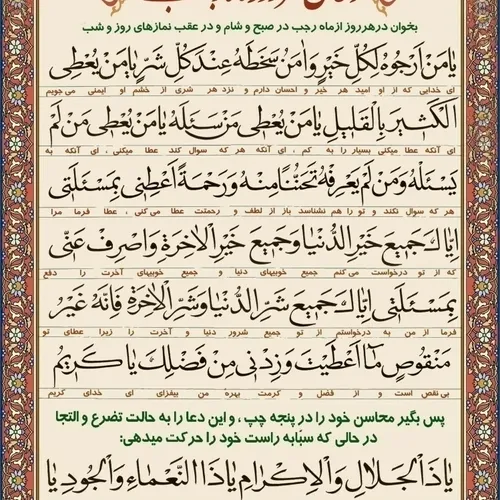 بخوان درهرروز ازماه رجب در صبح و شام و در عقب نمازهای روز و شب
یَامَنْ اَرْجُوهُ لِكُلِّ خَیْرٍ وَ اٰمَنُ سَخَطَهُ عِنْدَ كُلِّ شَرٍّ یَامَنْ یُعْطِی
ای خدایی که از او امید هر خیر و احسان دارم و نزد هر شری از خشم او ایمنی می جویم
الْكَثیرَ بِالْقَلیلِ یَامَنْ یُعْطی مَنْ سَئَلَهُ یَامَنْ یُعْطی مَنْ لَمْ
ای آنکه عطا میکنی بسیار را به کم ، ای آنکه هر که سوال کند عطا میکنی ، ای آنکه به
یَسْئَلْهُ وَمَنْ لَمْ یَعْرِفْهُ تَحَنُّنًا مِنْهُ وَرَحْمَةً اَعْطِنی بِمَسْئَلَتی
هر که سوال نکند و تو را هم نشناسد باز از لطف و رحمتت عطا می کنی ، عطا فرما مرا
اِیَّاكَ جَمیعَ خَیْرِ الدُّنْیَا وَجَمیعَ خَیْرِ الْاٰخِرَةِ وَاصْرِفْ عَنّی
که از تو درخواست می کنم جمیع خوبیهای دنیا و جمیع خوبیهای آخرت را دفع
بِمَسْئَلَتی اِیَّاكَ جَمیعَ شَرِّ الدُّنْیَا وَشَرِّ الْاٰخِرَةِ فَاِنَّهُ غَیْرُ
فرما از من به درخواستم از تو جمیع شرور دنیا و آخرت را زیرا عطای تو
مَنْقُوصٍ مَا اَعْطَیْتَ وَزِدْنی مِنْ فَضْلِكَ یَا كَریمُ
بی نقص است و از فضل و کرمت بهره من بیفزای ای خدای کریم
پس بگیر محاسن خود را در پنجه چپ ، و این دعا را به حالت تضرع و التجا
در حالی که سبّابه راست خود را حرکت میدهی:
یَاذَا الْجَلَالِ وَالْاِكْرَامِ یَاذَا النَّعْمَاءِ وَالْجُودِ یَا